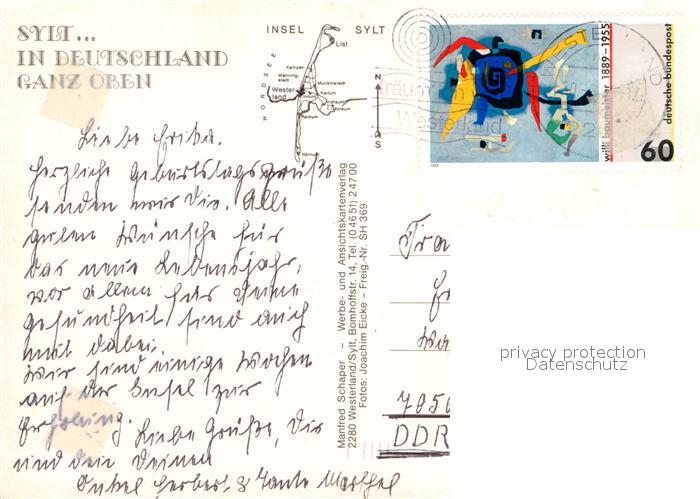 SYLT...
IN DEUTSCHLAND
GANZ OBEN
INSEL SYLT
List
NORDSEE
Kampen
Westerland
Munkmarsch
Keitum
Rantum
Hörnum
N
S
Westerland
willi baumeister 1889-1955
deutsche bundespost
60
Liebe Erika.
Herzliche Geburtstagsgrüße
senden wir Dir. Alle
guten Wünsche für
das neue Lebensjahr,
vor allem für Deine
Gesundheit sind auch
mit dabei.
Wir sind einige Wochen
auf der Insel zur
Erholung. Liebe Grüße, Dir
und den Deinen
Onkel Herbert & Tante Marthel
Manfred Schaper – Werbe- und Ansichtskartenverlag
2280 Westerland/Sylt, Bomhoffstr. 14, Tel. (04651) 24700
Fotos: Joachim Eicke – Freig.-Nr. SH 369
Fra
DDR
privacy protection
Datenschutz